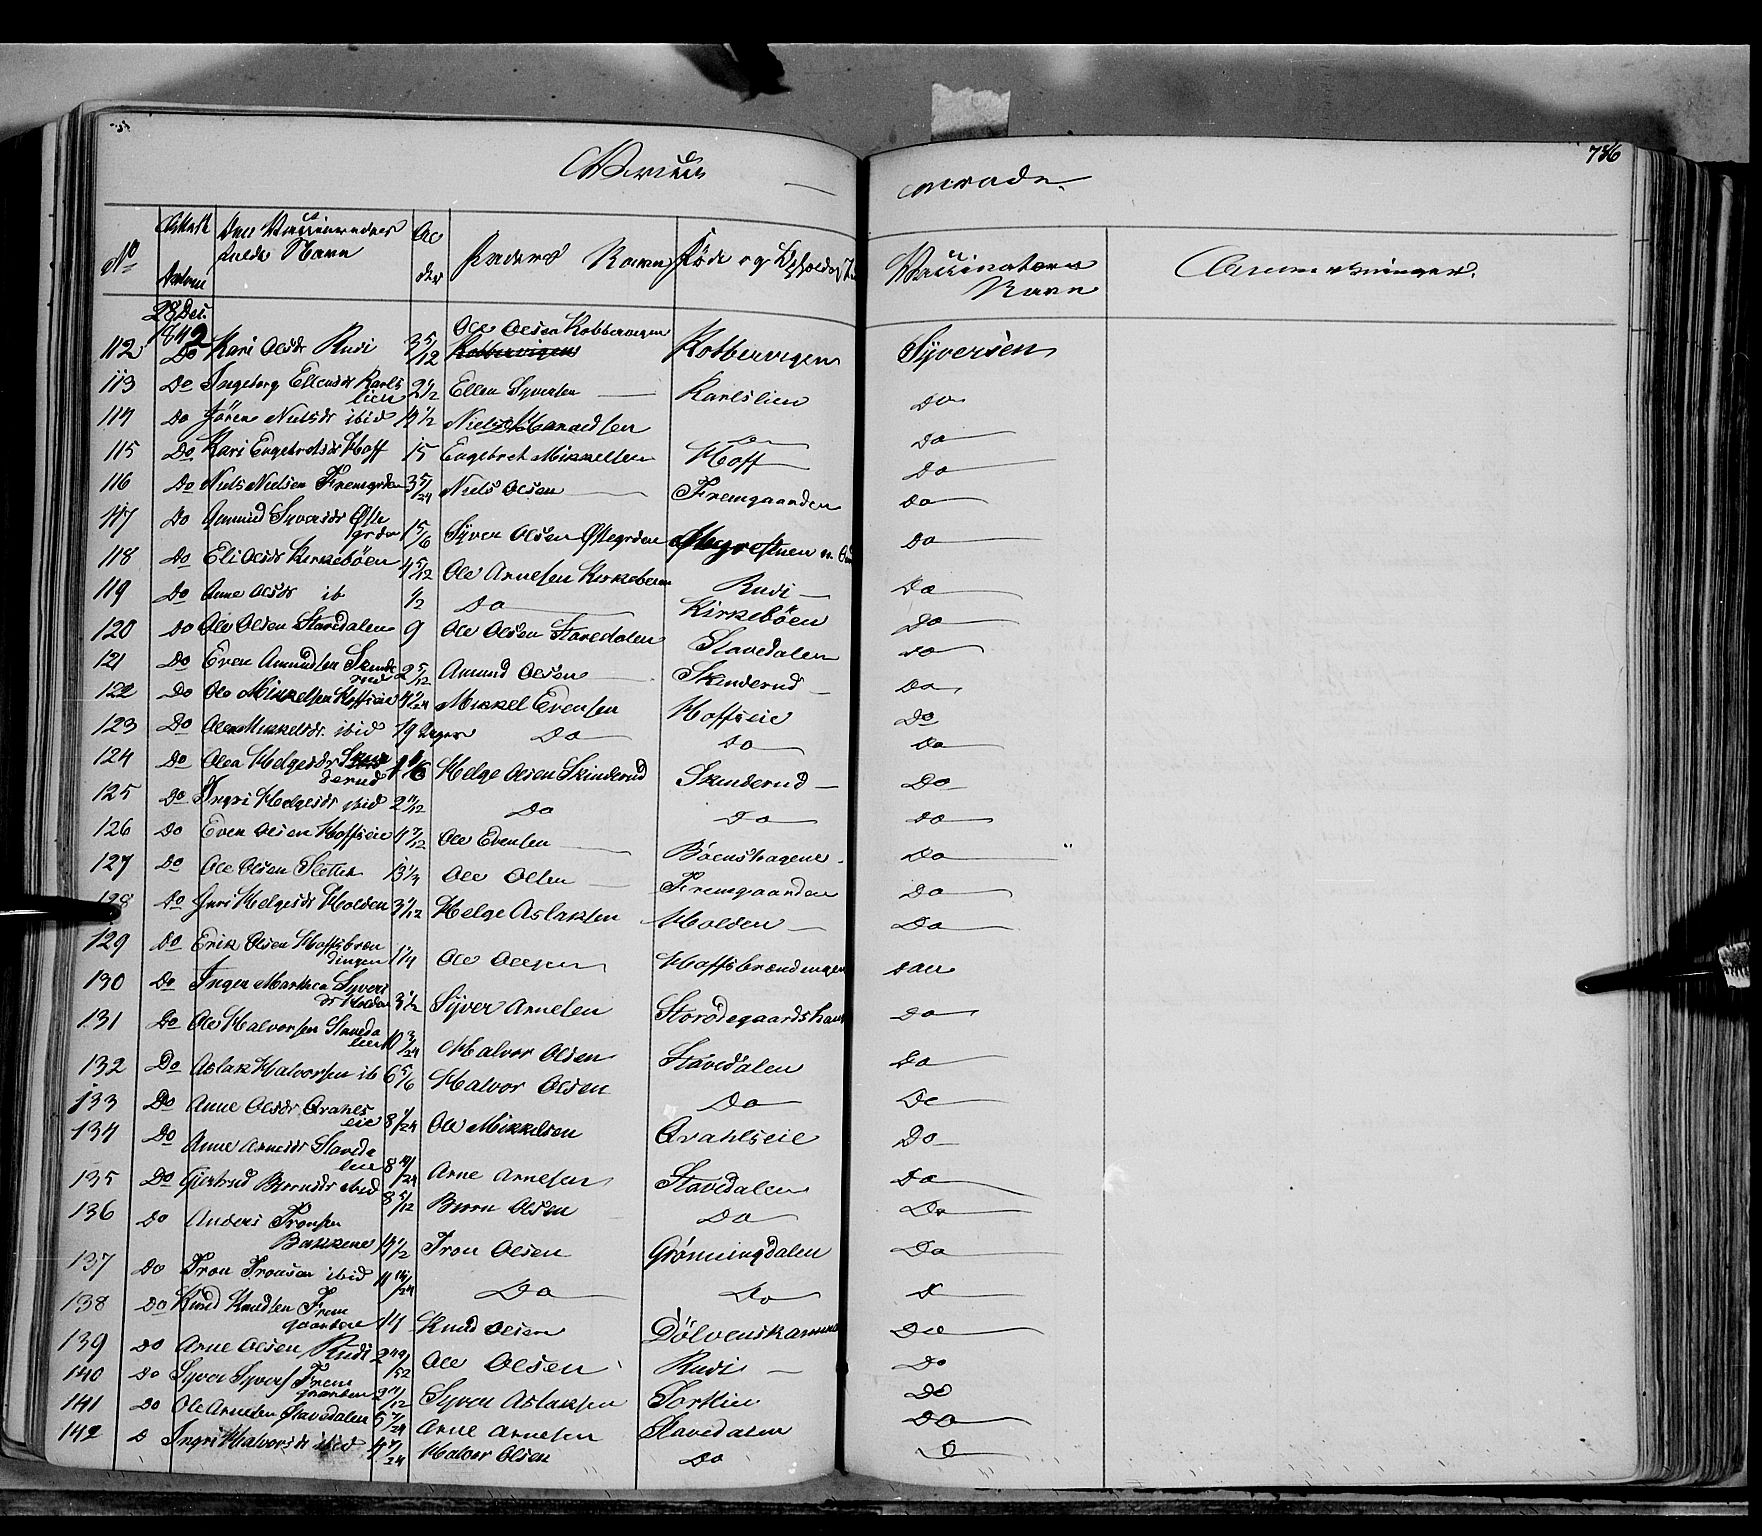 736
Vaccinerede
No
Attest Datum
Den Vaccineredes fulde Navn
Alder
Faders Navn
Føde og Opholds St
Vaccinateurens Navn
Anmærkninger.
28 Dec. 1842
112 Do Kari Olsdr Rudi 3 5/12 Ole Olsen Kobbervigen Kobbervigen Syversen
113 Do Ingeborg Ellensdr Karlslien 2 1/2 Ellen Syversen Karlslien Do
114 Do Jören Nielsdr ibid 4 1/2 Niels Do Do
115 Do Kari Engebretsdr Hoff 15 Engebret Mikkelsen Hoff Do
116 Do Niels Nielsen Fremgrden 3 5/24 Niels Olsen Fremgaarden Do
117 Do Amund Syversdr Østegrden 1 5/6 Syver Olsen Østegrden Do
118 Do Eli Olsdr Kirkeböen 4 5/12 Ole Arnesen Kirkeböen Rudi Do
119 Do Anne Olsdr ib 1/2 Do Kirkeböen Do
120 Do Ole Olsen Stavedalen 9 Ole Olsen Stavedalen Stavedalen Do
121 Do Even Amundsen Skinderud 2 5/12 Amund Olsen Skinderud Do
122 Do Ole Mikkelsen Hoffseie Mikkel Evensen Hoffseie Do
123 Do Olea Mikkelsdr. ibid 19 Dager Do Do Do
124 Do Olea Helgesdr Skinderud Helge Olsen Skinderud Skinderud Do
125 Do Ingri Helgesdr ibid 2 11/12 Do Do Do
126 Do Even Olsen Hoffseie 4 7/12 Ole Evensen Böenshagene Do
127 Do Ole Olsen Sletten 13 1/3 Ole Olsen Fremgaarden Do
128 Do Guri Helgesdr Holden 3 7/12 Helge Aslaksen Holden Do
129 Do Erik Olsen Hoffsbrændingen 1 1/4 Ole Olesen Hoffsbrændingen Do
130 Do Inger Marthea Syversdr Holden 3 1/2 Syver Arnesen Storödegaardshau Do
131 Do Ole Halvorsen Stavedalen 10 3/24 Halvor Olsen Stavedalen Do
132 Do Aslak Halvorsen ib 6 5/6 Halvor Olsen Do Do
133 Do Anne Olsdr Qvahlseie 8 1/24 Ole Mikkelsen Qvahlseie Do
134 Do Anne Arnesdr Stavedalen Arne Arnesen Stavedalen Do
135 Do Giertrud Biørnsdr ibid 8 5/12 Biørn Olsen Do Do
136 Do Anders Tronsen Bakkene 14 1/2 Tron Olsen Grønningdalen Do
137 Do Tron Tronsen ibid Do Do Do
138 Do Knud Knudsen Fremgaarden 14 Knud Olsen Dölvenskammen Do
139 Do Arne Olsen Rudi Ole Olsen Rudi Do
140 Do Syver Syvers Fremgaarden 2 11/12 Syver Aslaksen Sorklien Do
141 Do Ole Arnesen Stavedalen 5 7/24 Arne Arnesen Stavedalen Do
142 D Ingri Halvorsdr ibid 4 7/24 Halvor Olsen Do Do